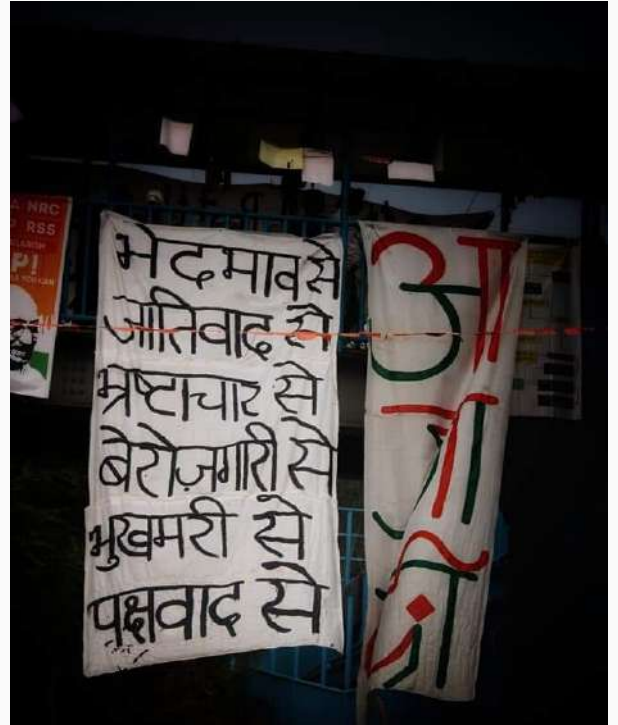 A NRC
RSS
P!
भेदभाव से
जातिवाद से
भ्रष्टाचार से
बेरोज़गारी से
भुखमरी से
पक्षवाद से
आ